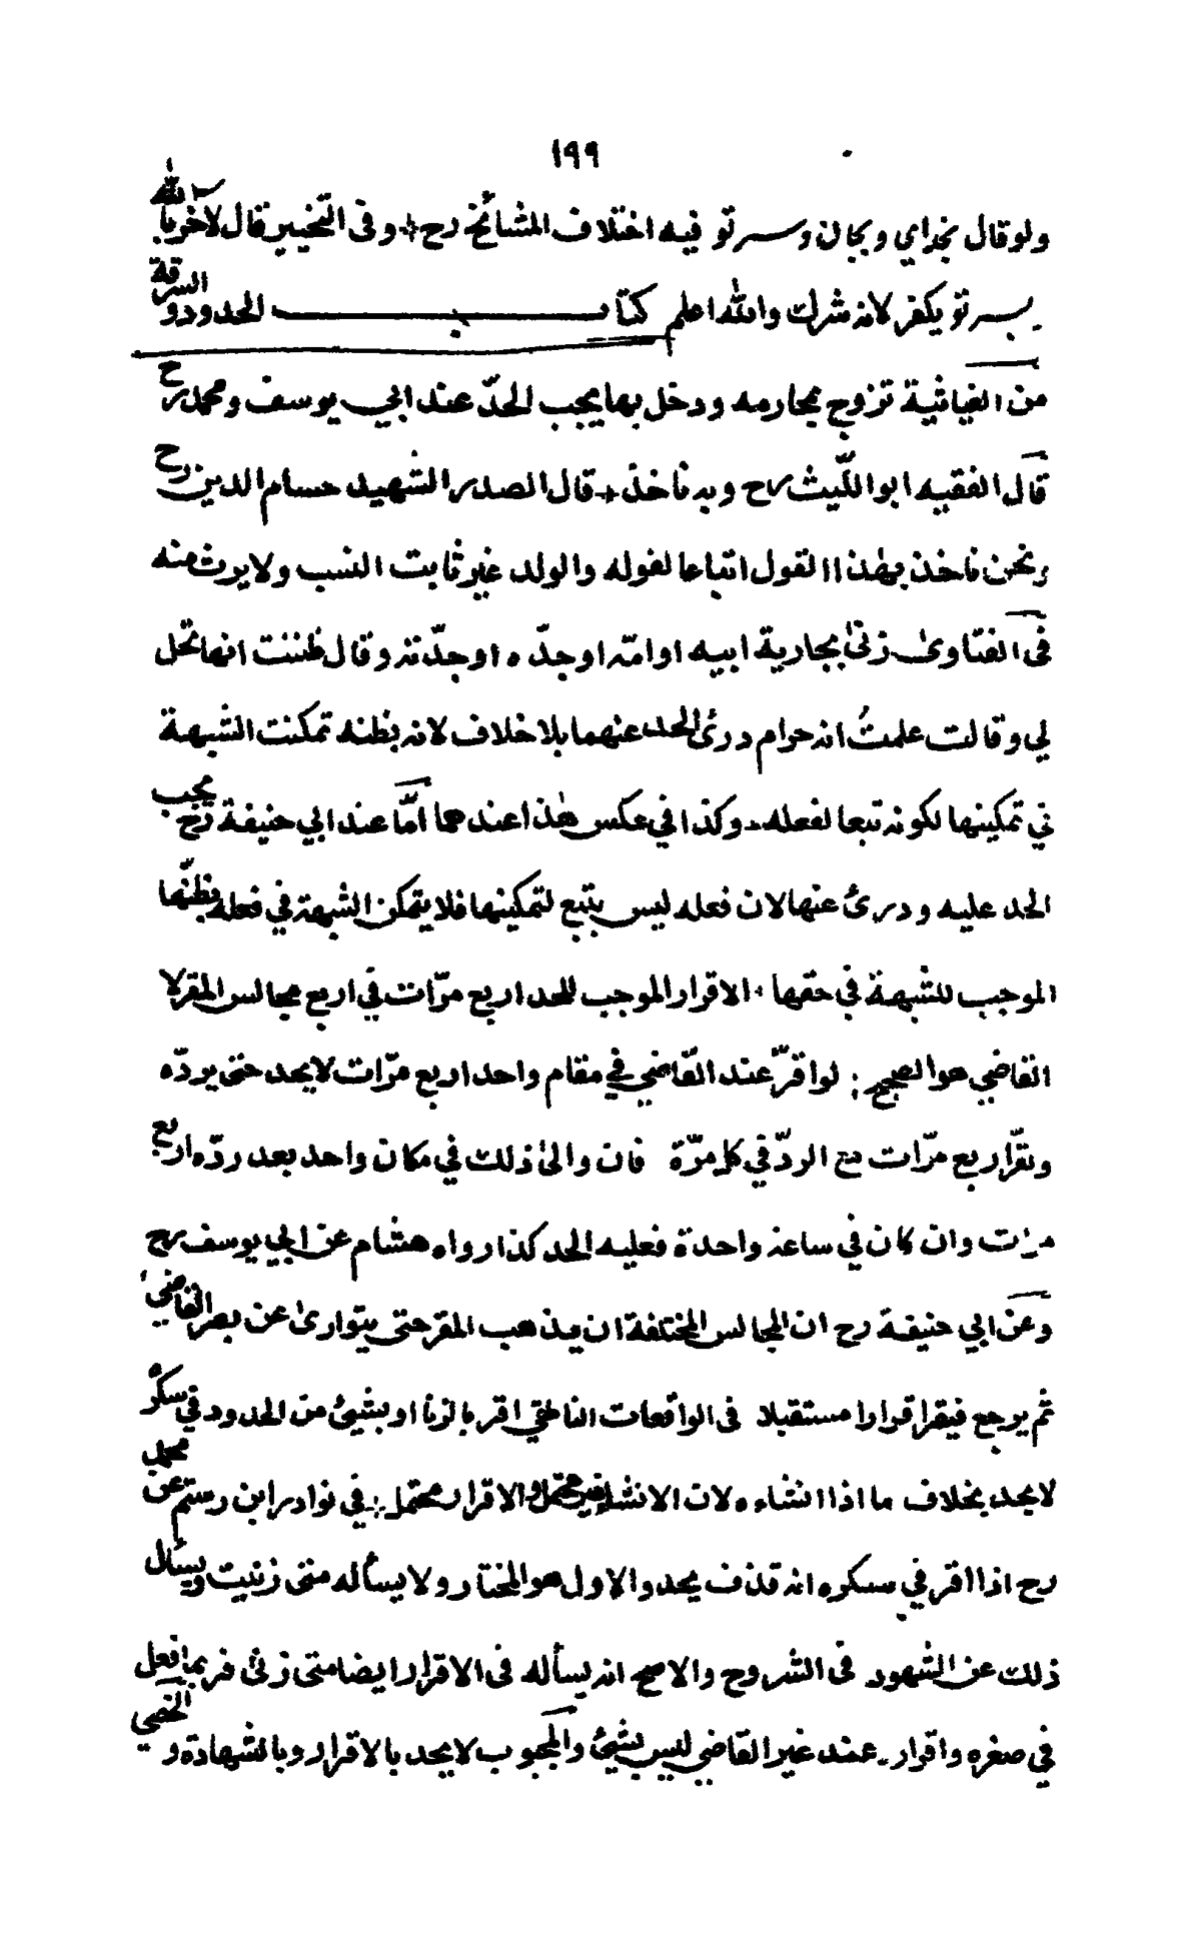 ١٩٩
ولو قال بخداي و بجان وسر تو فيه اختلاف المشائخ رح + وفى التخيير قال لآخر با لله
بسر تو يكفر لانه شرك والله اعلم كتاب الحدود و السرقة
من الغياثية تزوج بمحارمه ودخل بها يجب الحدّ عند ابي يوسف ومحمد رح
قال الفقيه ابو اللّيث رح وبه نأخذ + قال الصدر الشهيد حسام الدين رح
ونحن نأخذ بهٰذا القول اتباعا لقوله والولد غير ثابت النسب ولا يرث منه
فى الفتاوىٰ زنىٰ بجارية ابيه او امّه او جدّه او جدّته وقال ظننت انها تحل
لي وقالت علمتُ انه حرام درئ الحد عنهما بلا خلاف لانه بظنه تمكنت الشبهة
في تمكينها لكونه تبعا لفعله وكذا في عكس هٰذا عندهما امّا عند ابي حنيفة رح يجب
الحد عليه ودرئ عنها لان فعله ليس بتبع لتمكينها فلا يتمكن الشبهة في فعله بظنّها
الموجب للشبهة في حقها ٠ الاقرار الموجب للحد اربع مرّات في اربع مجالس المقر لا
القاضي هو الصحيح : لو اقرّ عند القاضي في مقام واحد اربع مرّات لا يحد حتى يردّه
ويقرّ اربع مرّات مع الردّ في كل مرّة فان والىٰ ذلك في مكان واحد بعد ردّه اربع
مرات وان كان في ساعة واحدة فعليه الحد كذا رواه هشام عن ابي يوسف رح
وعن ابي حنيفة رح ان المجالس المختلفة ان يذهب المقر حتى يتوارىٰ عن بصر القاضي
ثم يرجع فيقر اقرارا مستقبلا فى الواقعات الناطفي اقر بالزنا او بشيئ من الحدود في سكره
لا يحد بخلاف ما اذا انشاءه لان الانشاء غير محتمل والاقرار محتمل + في نوادر ابن رستم عن محمد
رح اذا اقر في سكره انه قذف يحد والاول هو المختار ولا يسأله متى زنيت ويسأل
ذلك عن الشهود فى الشروح والاصح انه يسأله فى الاقرار ايضا متى زنىٰ فربما فعل
في صغره واقرار عند غير القاضي ليس بشيئ والمجبوب لا يحد بالاقرار وبالشهادة و الخصي